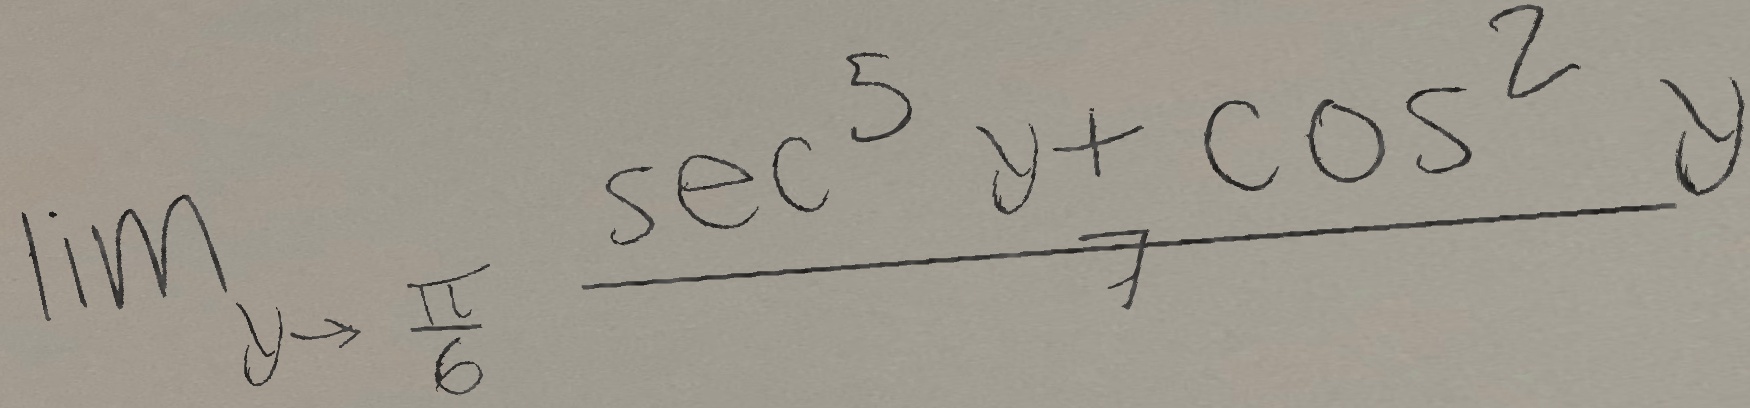 lim y→π/6 (sec^5 y + cos^2 y)/7